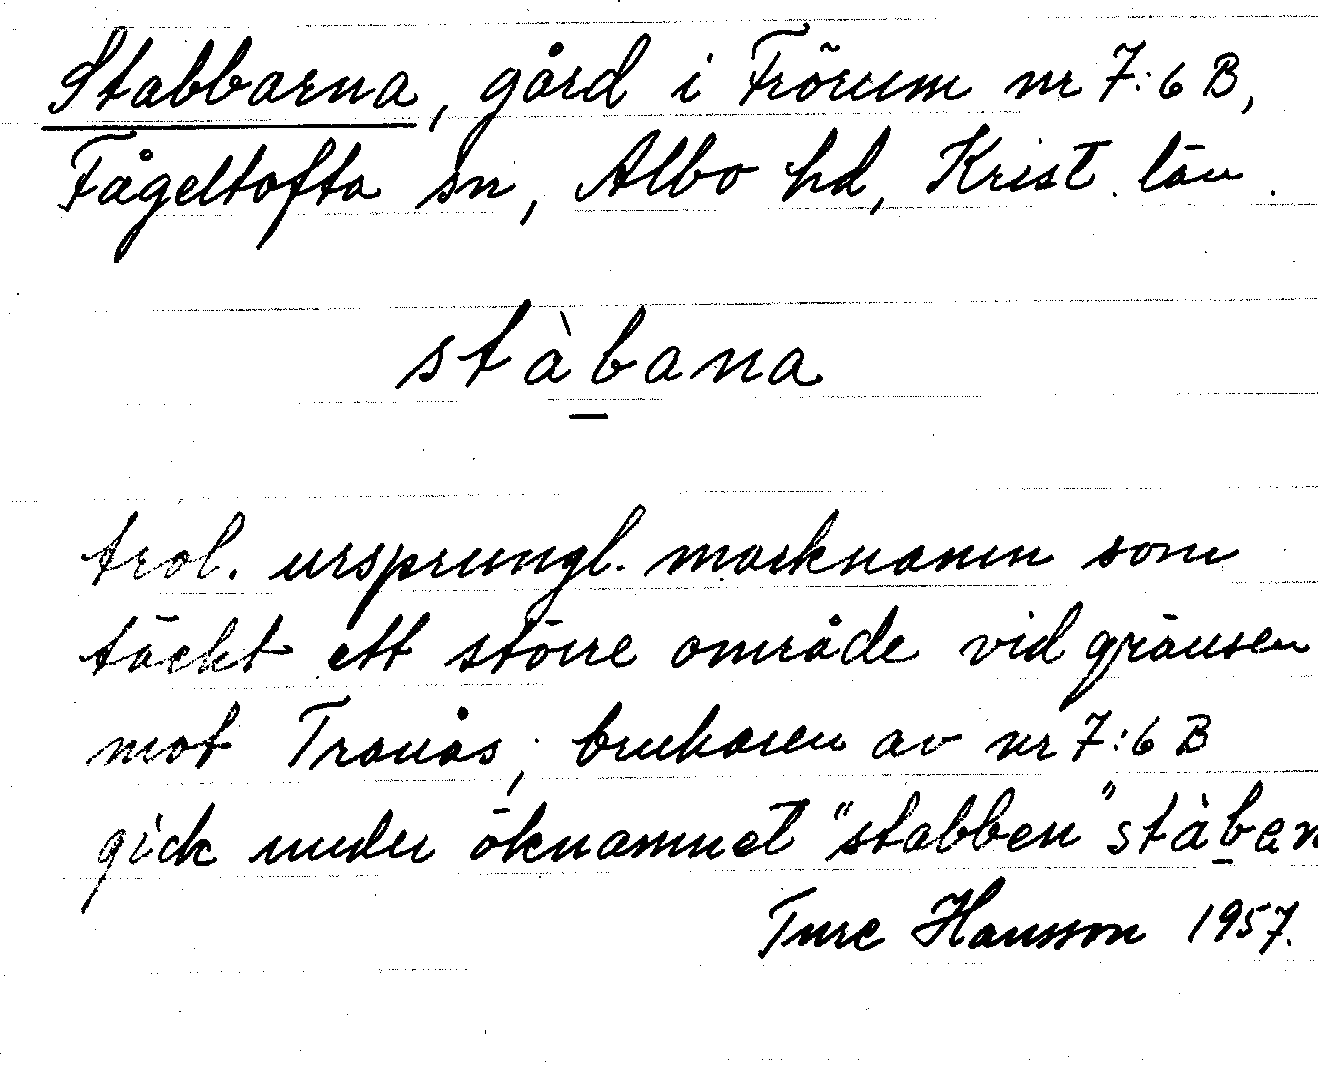 Stabbarna, gård i Frörum nr 7:6 B,
Fågeltofta sn, Albo hd, Krist. län.
stàb̲ana
trol. ursprungl. marknamn som
täckt ett större område vid gränsen
mot Tranås; brukaren av nr 7:6 B
gick under öknamnet "stabben" stàb̲an
Ture Hansson 1957.